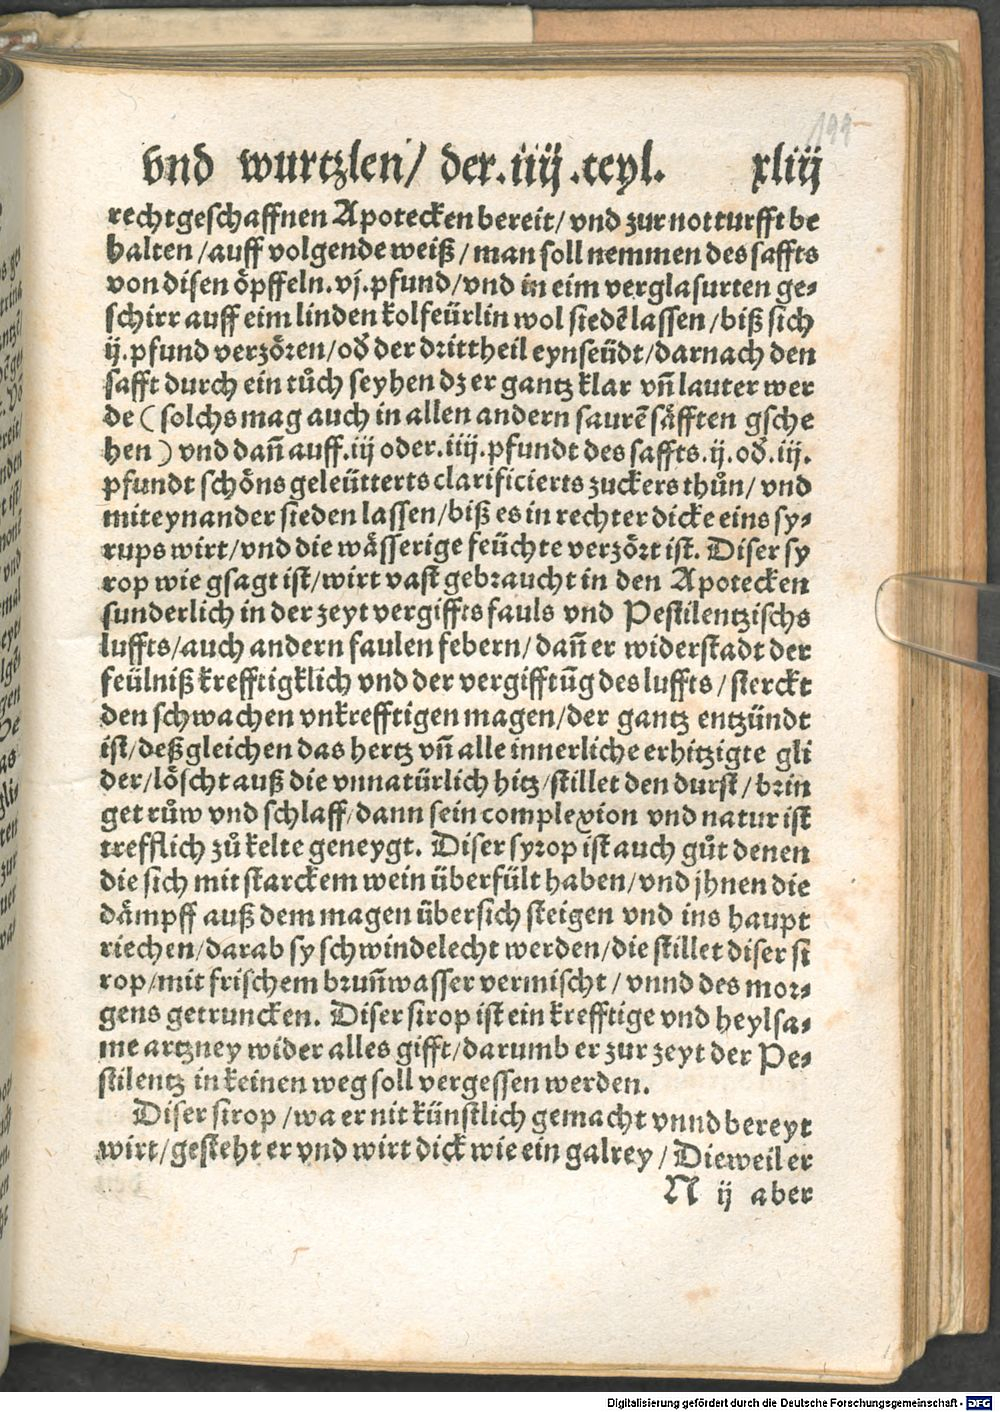 199
vnd wurtzlen/ der.iiij.teyl. xliij
rechtgeschaffnen Apotecken bereit/ vnd zur notturfft be
halten /auff volgende weiß / man soll nemmen des saffts
von disen öpffeln.vj.pfund/vnd in eim verglasurten ge⸗
schirr auff eim linden kolfeürlin wol siedẽ lassen /biß sich
ij.pfund verzören/oď der drittheil eynseüdt/darnach den
safft durch ein tůch seyhen dz er gantz klar vñ lauter wer
de ( solchs mag auch in allen andern saurẽ säfften gsche
hen ) vnd dañ auff.iij oder.iiij.pfundt des saffts.ij.oď.iij.
pfundt schöns geleütterts clarificierts zuckers thůn/ vnd
miteynander sieden lassen/biß es in rechter dicke eins sy⸗
rups wirt/vnd die wässerige feüchte verzört ist. Diser sy
rop wie gsagt ist/wirt vast gebraucht in den Apotecken
sunderlich in der zeyt vergiffts fauls vnd Pestilentzischs
luffts/auch andern faulen febern/dañ er widerstadt der
feülniß krefftigklich vnd der vergifftũg des luffts / sterckt
den schwachen vnkrefftigen magen/der gantz entzündt
ist/deßgleichen das hertz vñ alle innerliche erhitzigte gli
der/löscht auß die vnnatürlich hitz/stillet den durst/brin
get růw vnd schlaff/dann sein complexion vnd natur ist
trefflich zů kelte geneygt. Diser syrop ist auch gůt denen
die sich mit starckem wein überfült haben/vnd jhnen die
dämpff auß dem magen übersich steigen vnd ins haupt
riechen/darab sy schwindelecht werden/die stillet diser si
rop/mit frischem bruñwasser vermischt / vnnd des mor⸗
gens getruncken. Diser sirop ist ein krefftige vnd heylsa⸗
me artzney wider alles gifft/darumb er zur zeyt der Pe⸗
stilentz in keinen weg soll vergessen werden.
Diser sirop /wa er nit künstlich gemacht vnnd bereyt
wirt/gesteht er vnd wirt dick wie ein galrey / Dieweil er
N ij aber
Digitalisierung gefördert durch die Deutsche Forschungsgemeinschaft - DFG